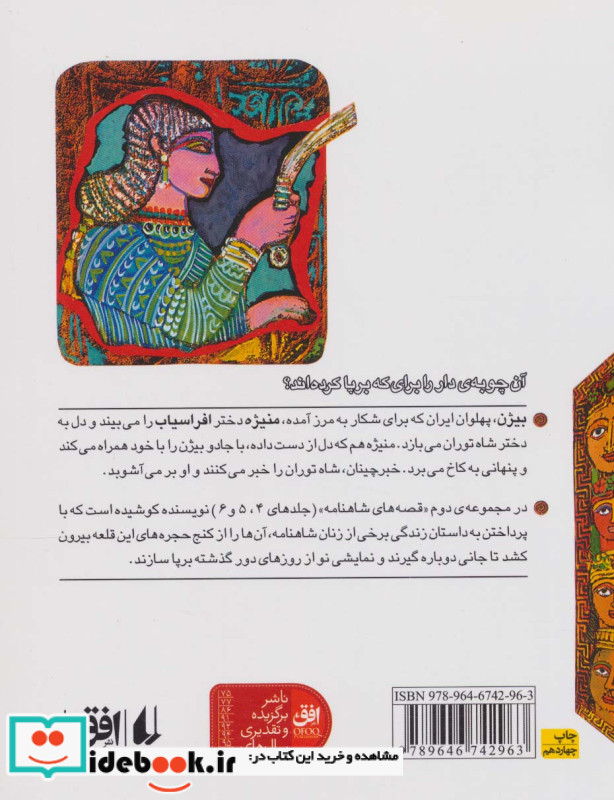 آن چوبه‌ی دار را برای که برپا کرده‌اند؟
بیژن، پهلوان ایران که برای شکار به مرز آمده، منیژه دختر افراسیاب را می‌بیند و دل به
دختر شاه توران می‌بازد. منیژه هم که دل از دست داده، با جادو بیژن را با خود همراه می‌کند
و پنهانی به کاخ می‌برد. خبرچینان، شاه توران را خبر می‌کنند و او بر می‌آشوبد.
در مجموعه‌ی دوم «قصه‌های شاهنامه» (جلدهای ۴، ۵ و ۶) نویسنده کوشیده است که با
پرداختن به داستان زندگی برخی از زنان شاهنامه، آن‌ها را از کنج حجره‌های این قلعه بیرون
کشد تا جانی دوباره گیرند و نمایشی نو از روزهای دور گذشته برپا سازند.
ISBN 978-964-6742-96-3
9789646742963
چاپ
چهاردهم
ناشر
برگزیده
و تقدیری
سال‌های
افق
OFOQ
۷۵
۷۷
افق
نشر
مشاهده و خرید این کتاب در:
iidebook.ir